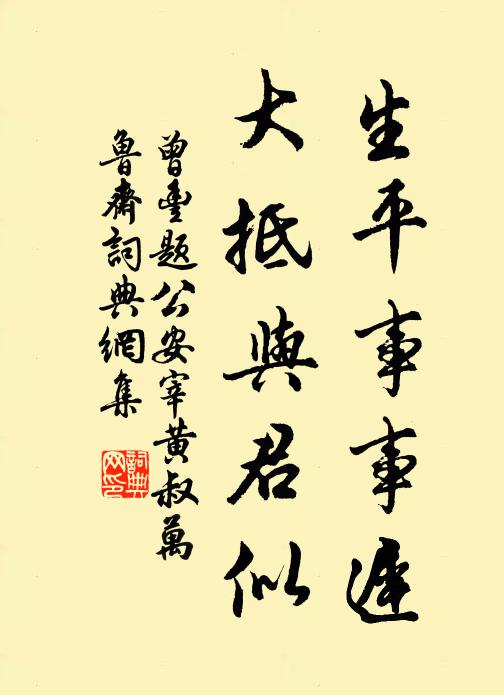 生平事事遲
大抵與君似
曾豐題公安宰黃叔萬
魯齋詞典網集
詞典网印